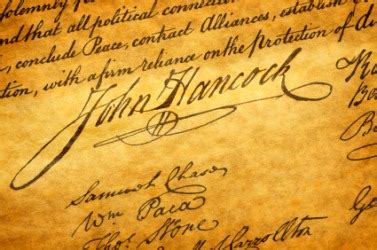 Solemnly
and that all political connection
conclude Peace, contract Alliances, establish
, with a firm reliance on the protection of
John Hancock
Samuel Chase
Wm Paca
Thos Stone
Carrollton